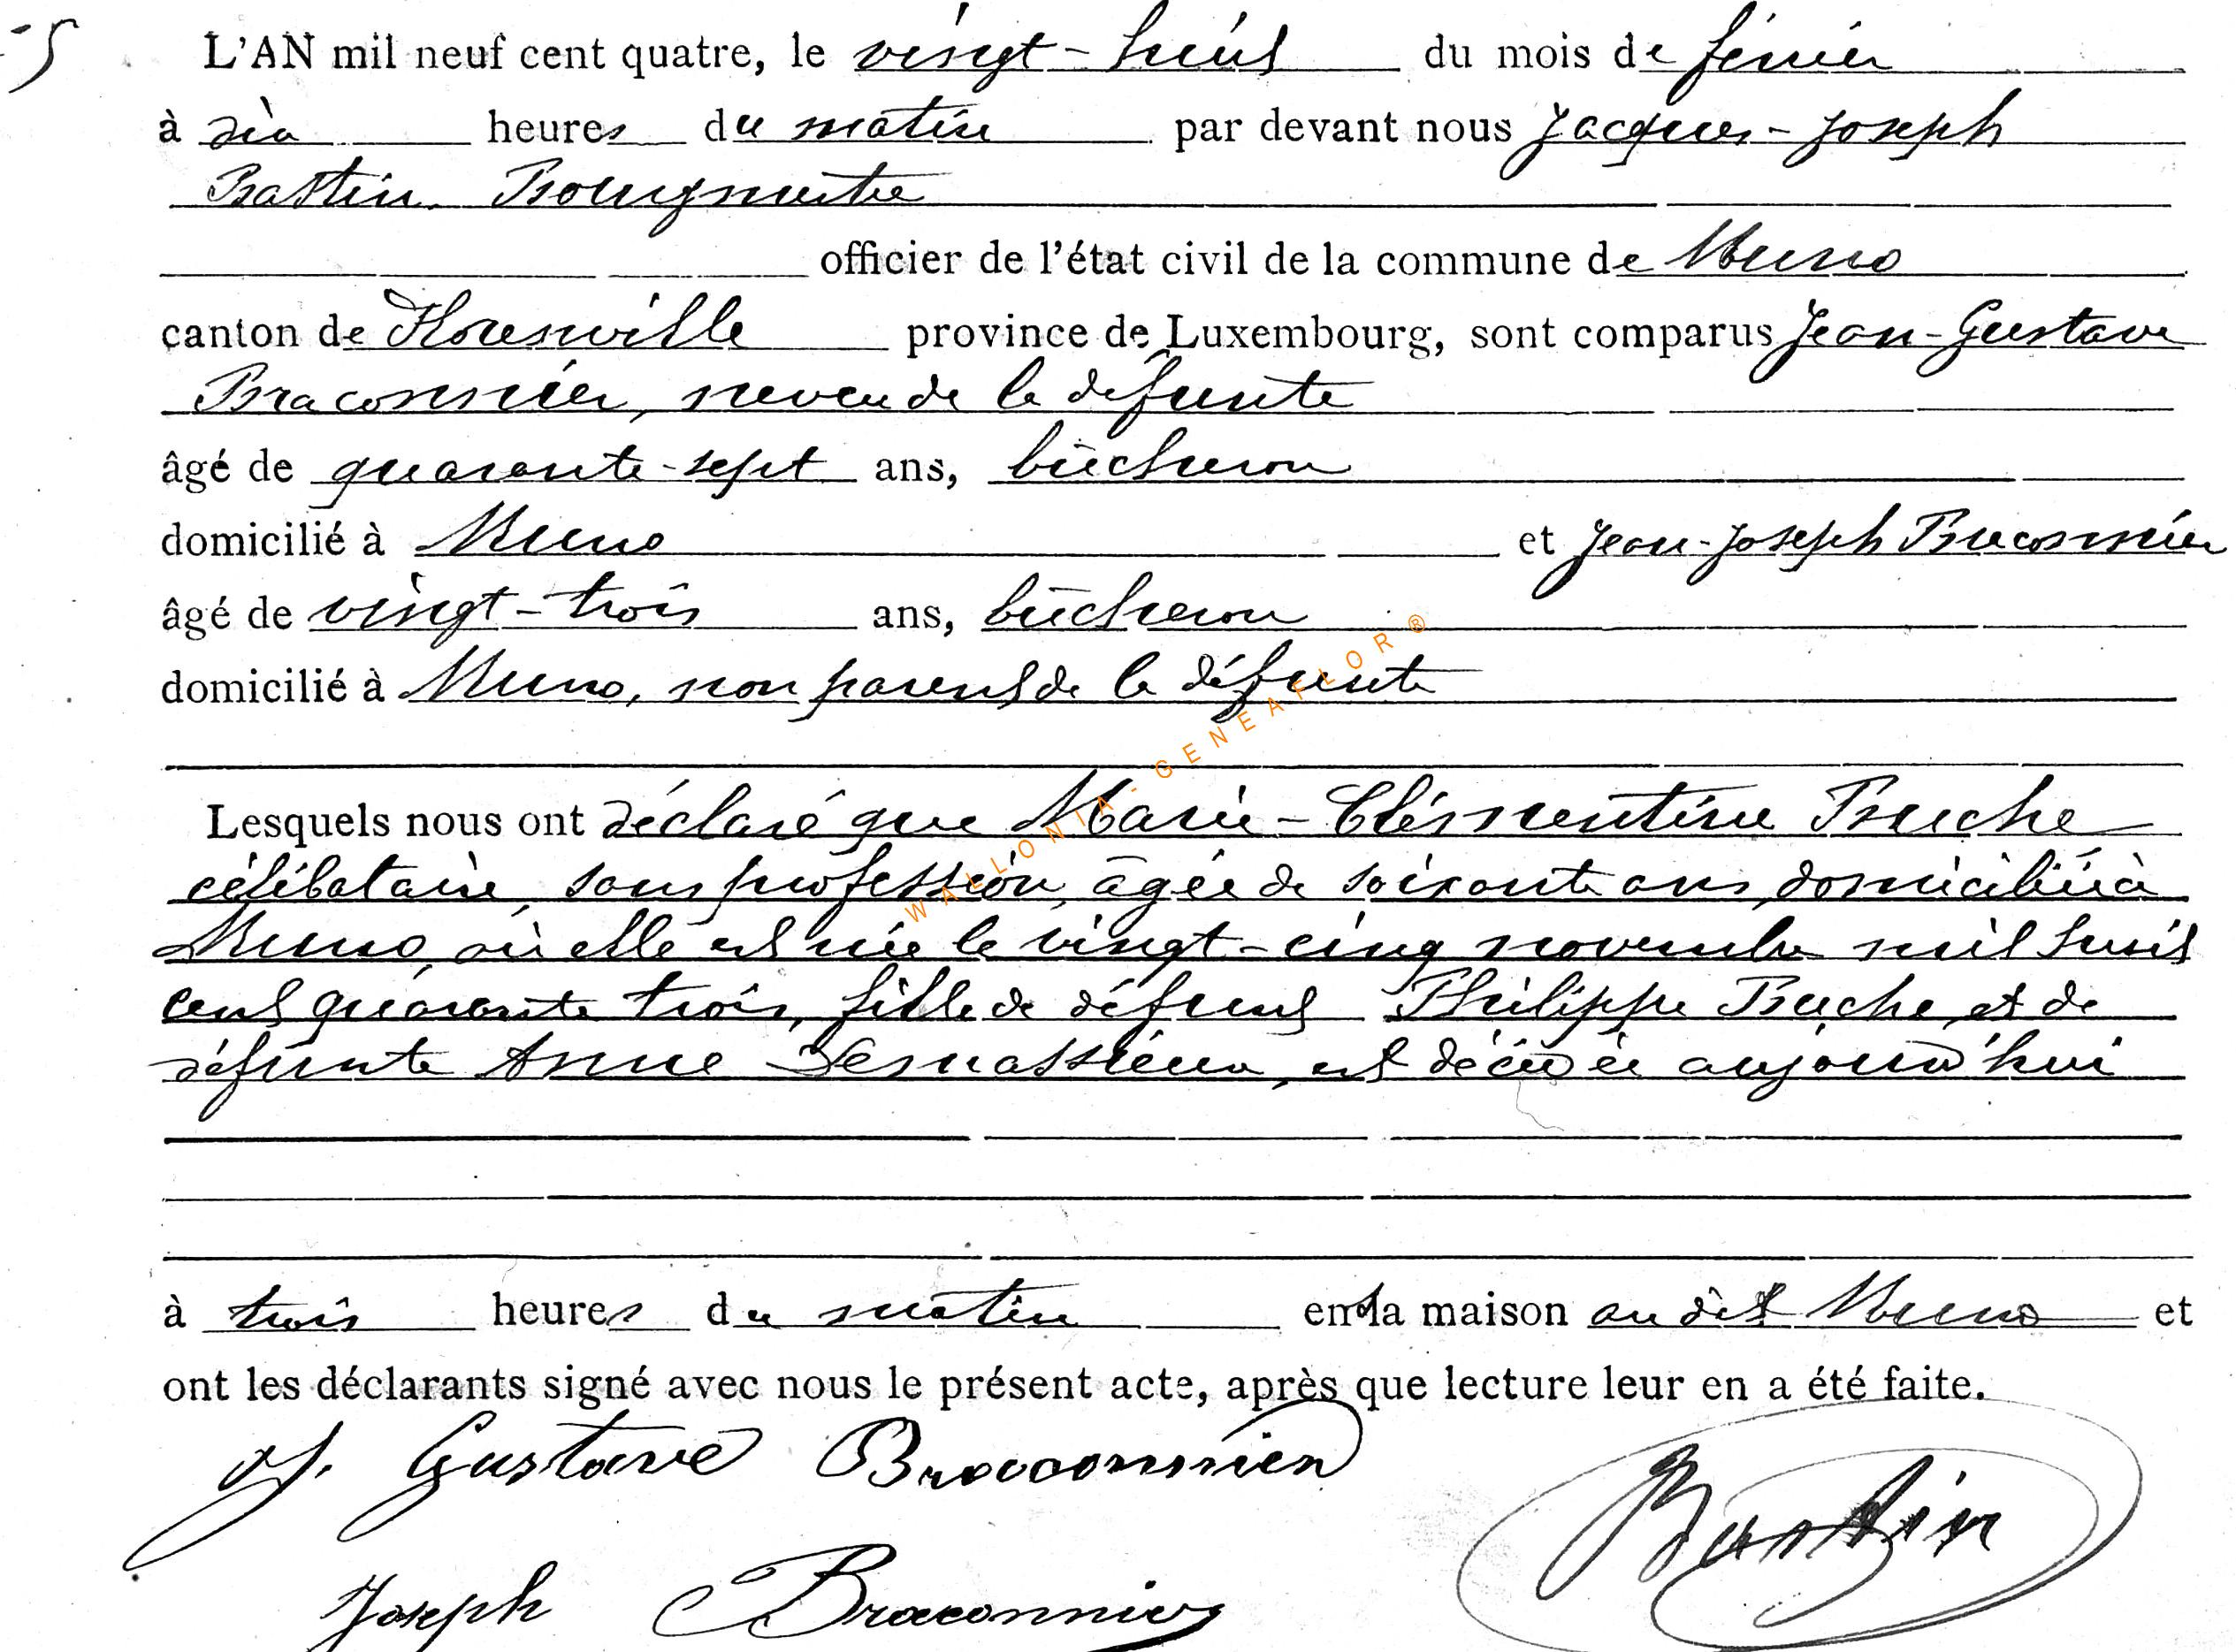 5
L'AN mil neuf cent quatre, le vingt-huit du mois de février
à dix heures du matin par devant nous Jacques-Joseph
Bastin Bourgmestre
officier de l'état civil de la commune de Muno
canton de Florenville province de Luxembourg, sont comparus Jean-Gustave
Braconnier, neveu de la défunte
âgé de quarante-sept ans, bûcheron
domicilié à Muno et Jean-Joseph Braconnier
âgé de vingt-trois ans, bûcheron
domicilié à Muno, non parent de la défunte
Lesquels nous ont déclaré que Marie-Clémentine Buche
célibataire, sans profession, âgée de soixante ans, domiciliée à
Muno, où elle est née le vingt-cinq novembre mil huit
cent quarante trois, fille de défunt Philippe Buche et de
défunte Anne est décédée aujourd'hui
à trois heures du matin en sa maison au dit Muno et
ont les déclarants signé avec nous le présent acte, après que lecture leur en a été faite.
J. Gustave Braconnier
Bastin
Joseph Braconnier
WALLONIA-GENEAFLOR ®